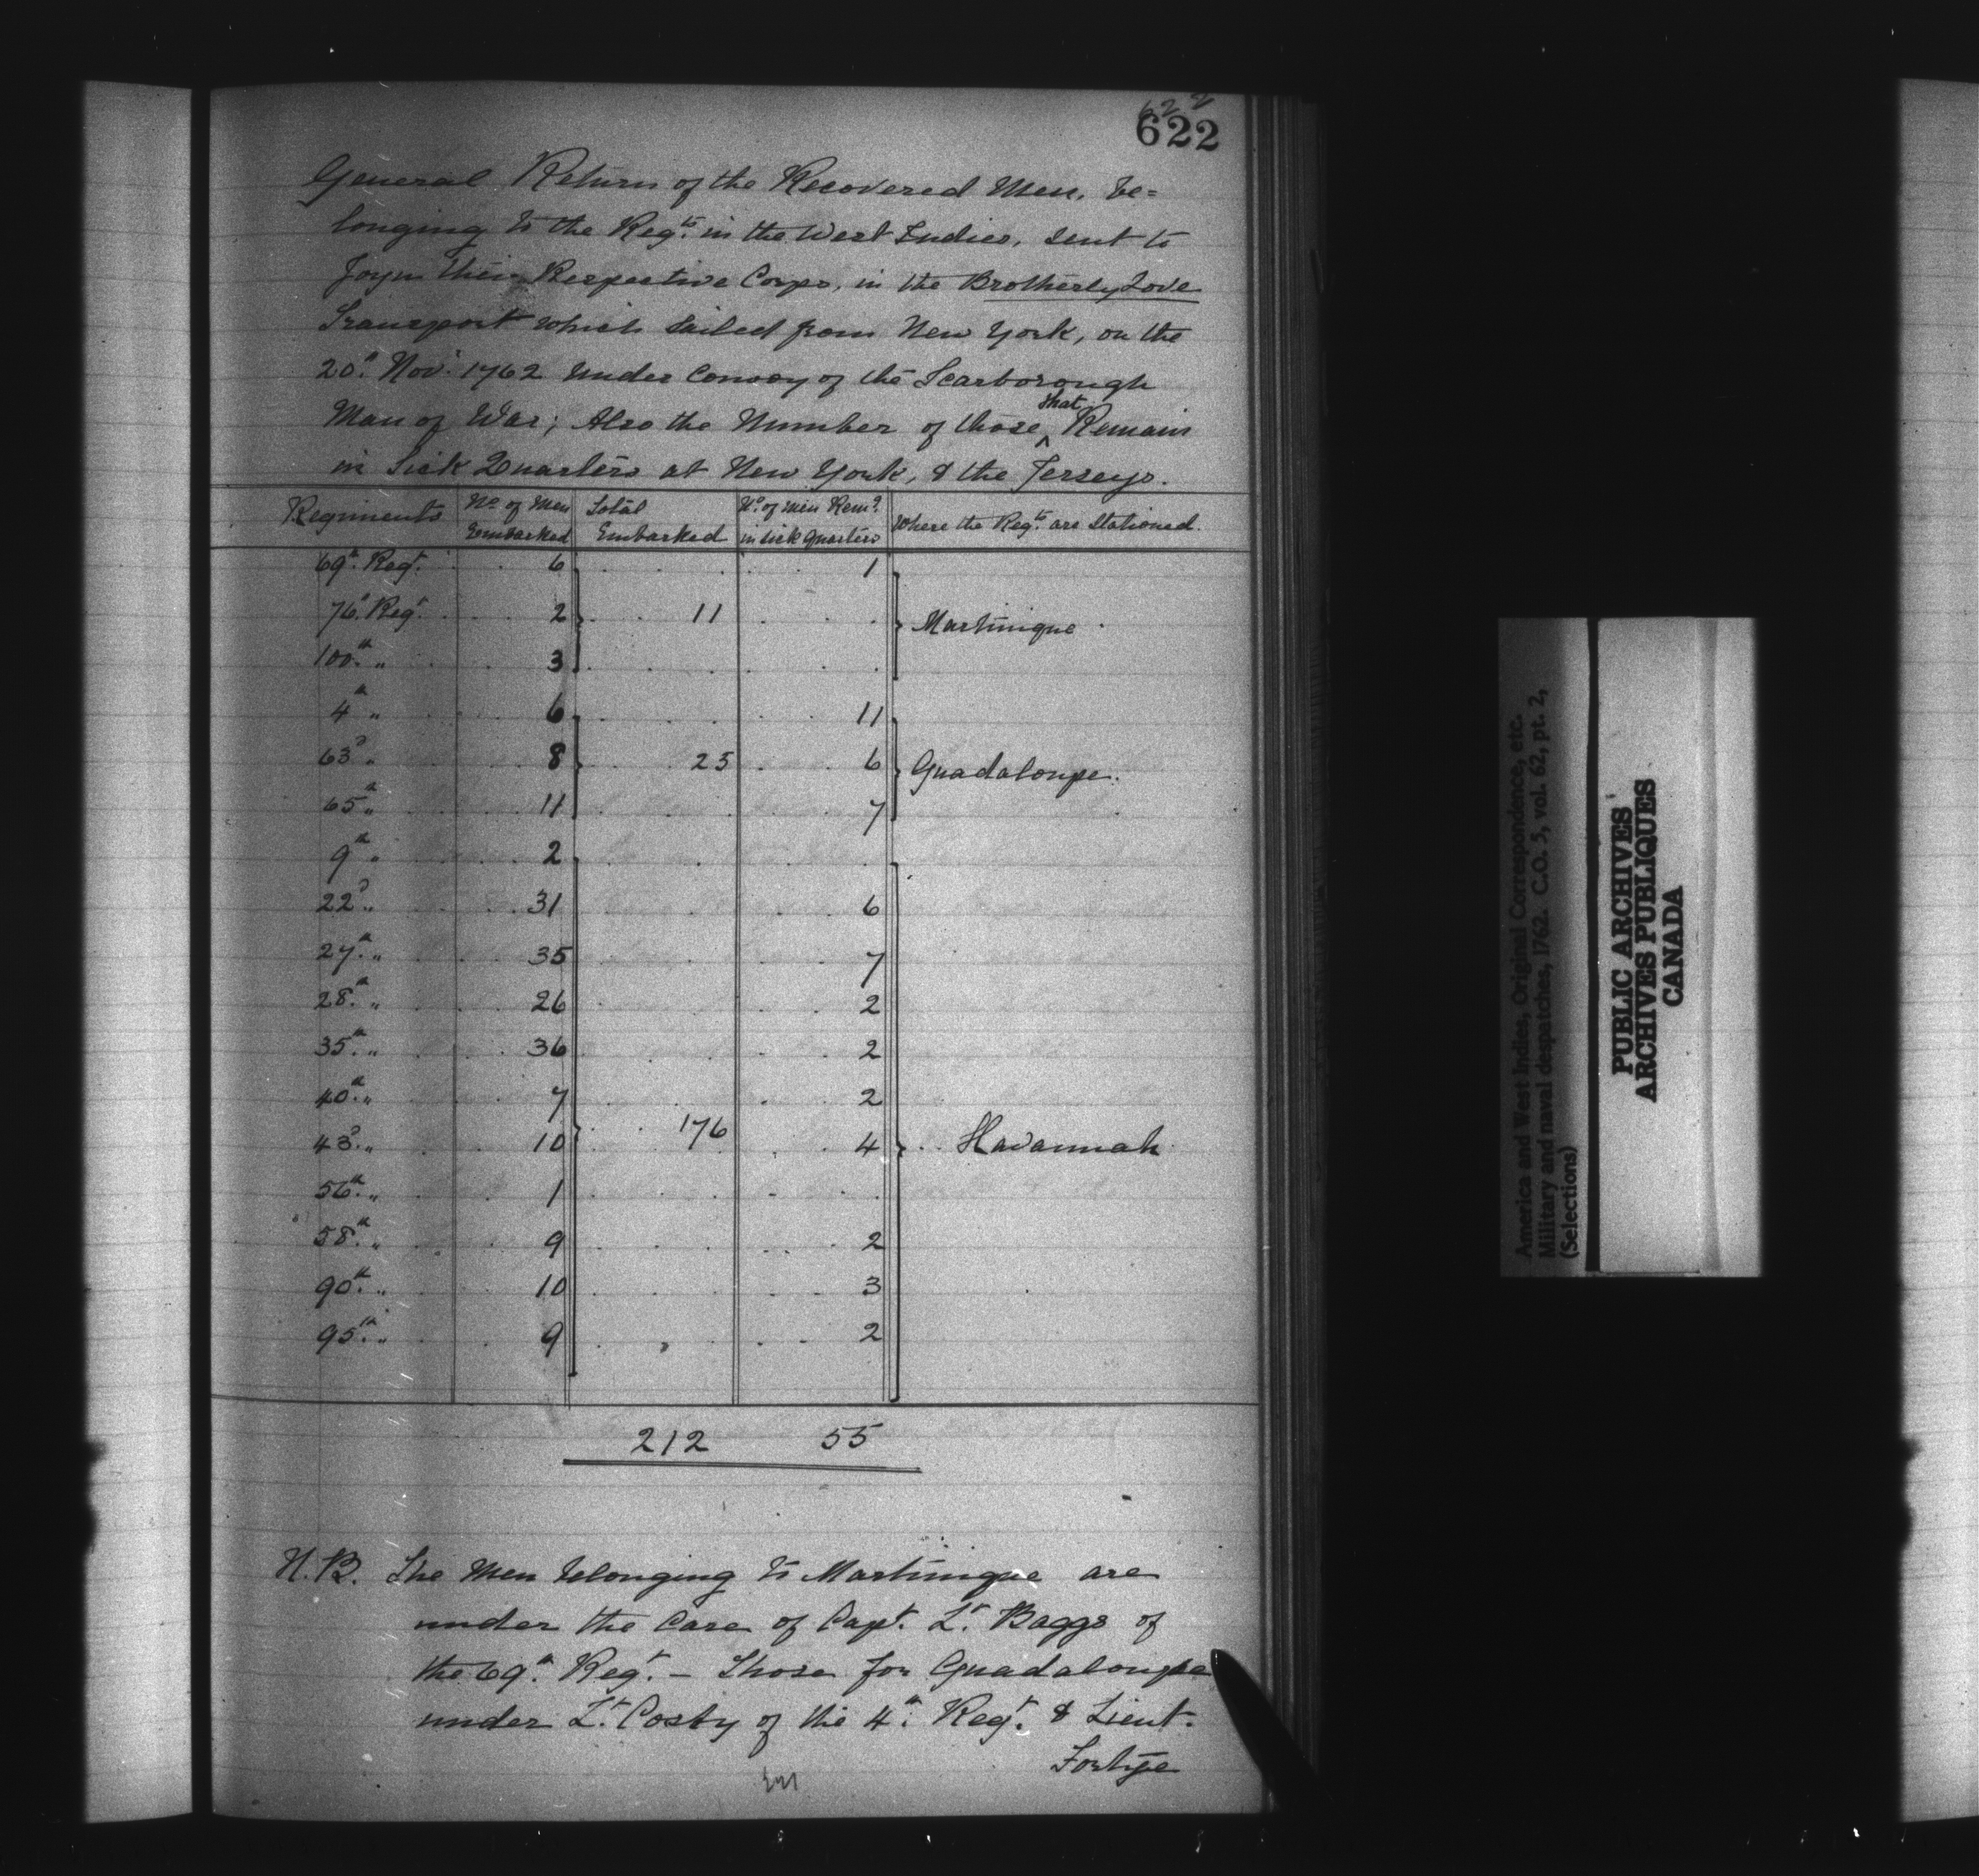 622
622
General Return of the Recovered Men, be=
longing to the Regts. in the West Indies, sent to
Joyn their Respective Corps, in the Brotherly Love
Transport which sailed from New York, on the
20th. Novr. 1762 under Convoy of the Scarborough
Man of War; Also the Number of those ^ that Remain
in Sick Quarters at New York, & the Jerseys.
Regiments | No. of Men Embarked | Total Embarked | No. of men Remg. in sick quarters | Where the Regts. are Stationed.
69th. Regt. 6 1
76th. Regt. 2 11 Martinique
100th. " 3
4th " 6 11
63d. " 8 25 6 Guadaloupe.
65th " 11 7
9th " 2
22d. " 31 6
27th. " 35 7
28th. " 26 2
35th. " 36 2
40th. " 7 2
43d. " 10 176 4 Havannah
56th. " 1
58th. " 9 2
90th. " 10 3
95th. " 9 2
212 55
N.B. The Men belonging to Martinique are
under the Care of Capt. Lt. Baggs of
the 69th. Regt. – Those for Guadaloupe
under Lt. Cosby of the 4th. Regt. & Lieut.
Fortye
America and West Indies, Original Correspondence, etc.
Military and naval despatches, 1762. C.O. 5, vol. 62, pt. 2,
(Selections)
PUBLIC ARCHIVES
ARCHIVES PUBLIQUES
CANADA